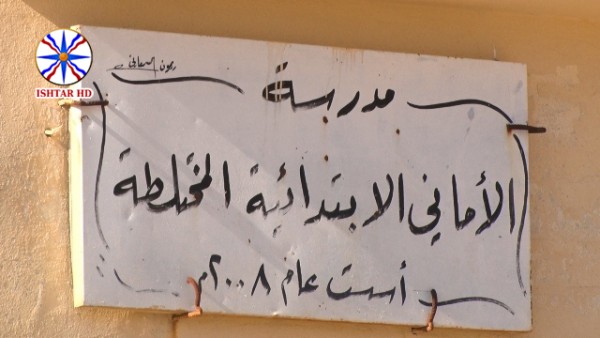 ISHTAR HD
مدرسة
الأماني الابتدائية المختلطة
أسست عام ٢٠٠٨م